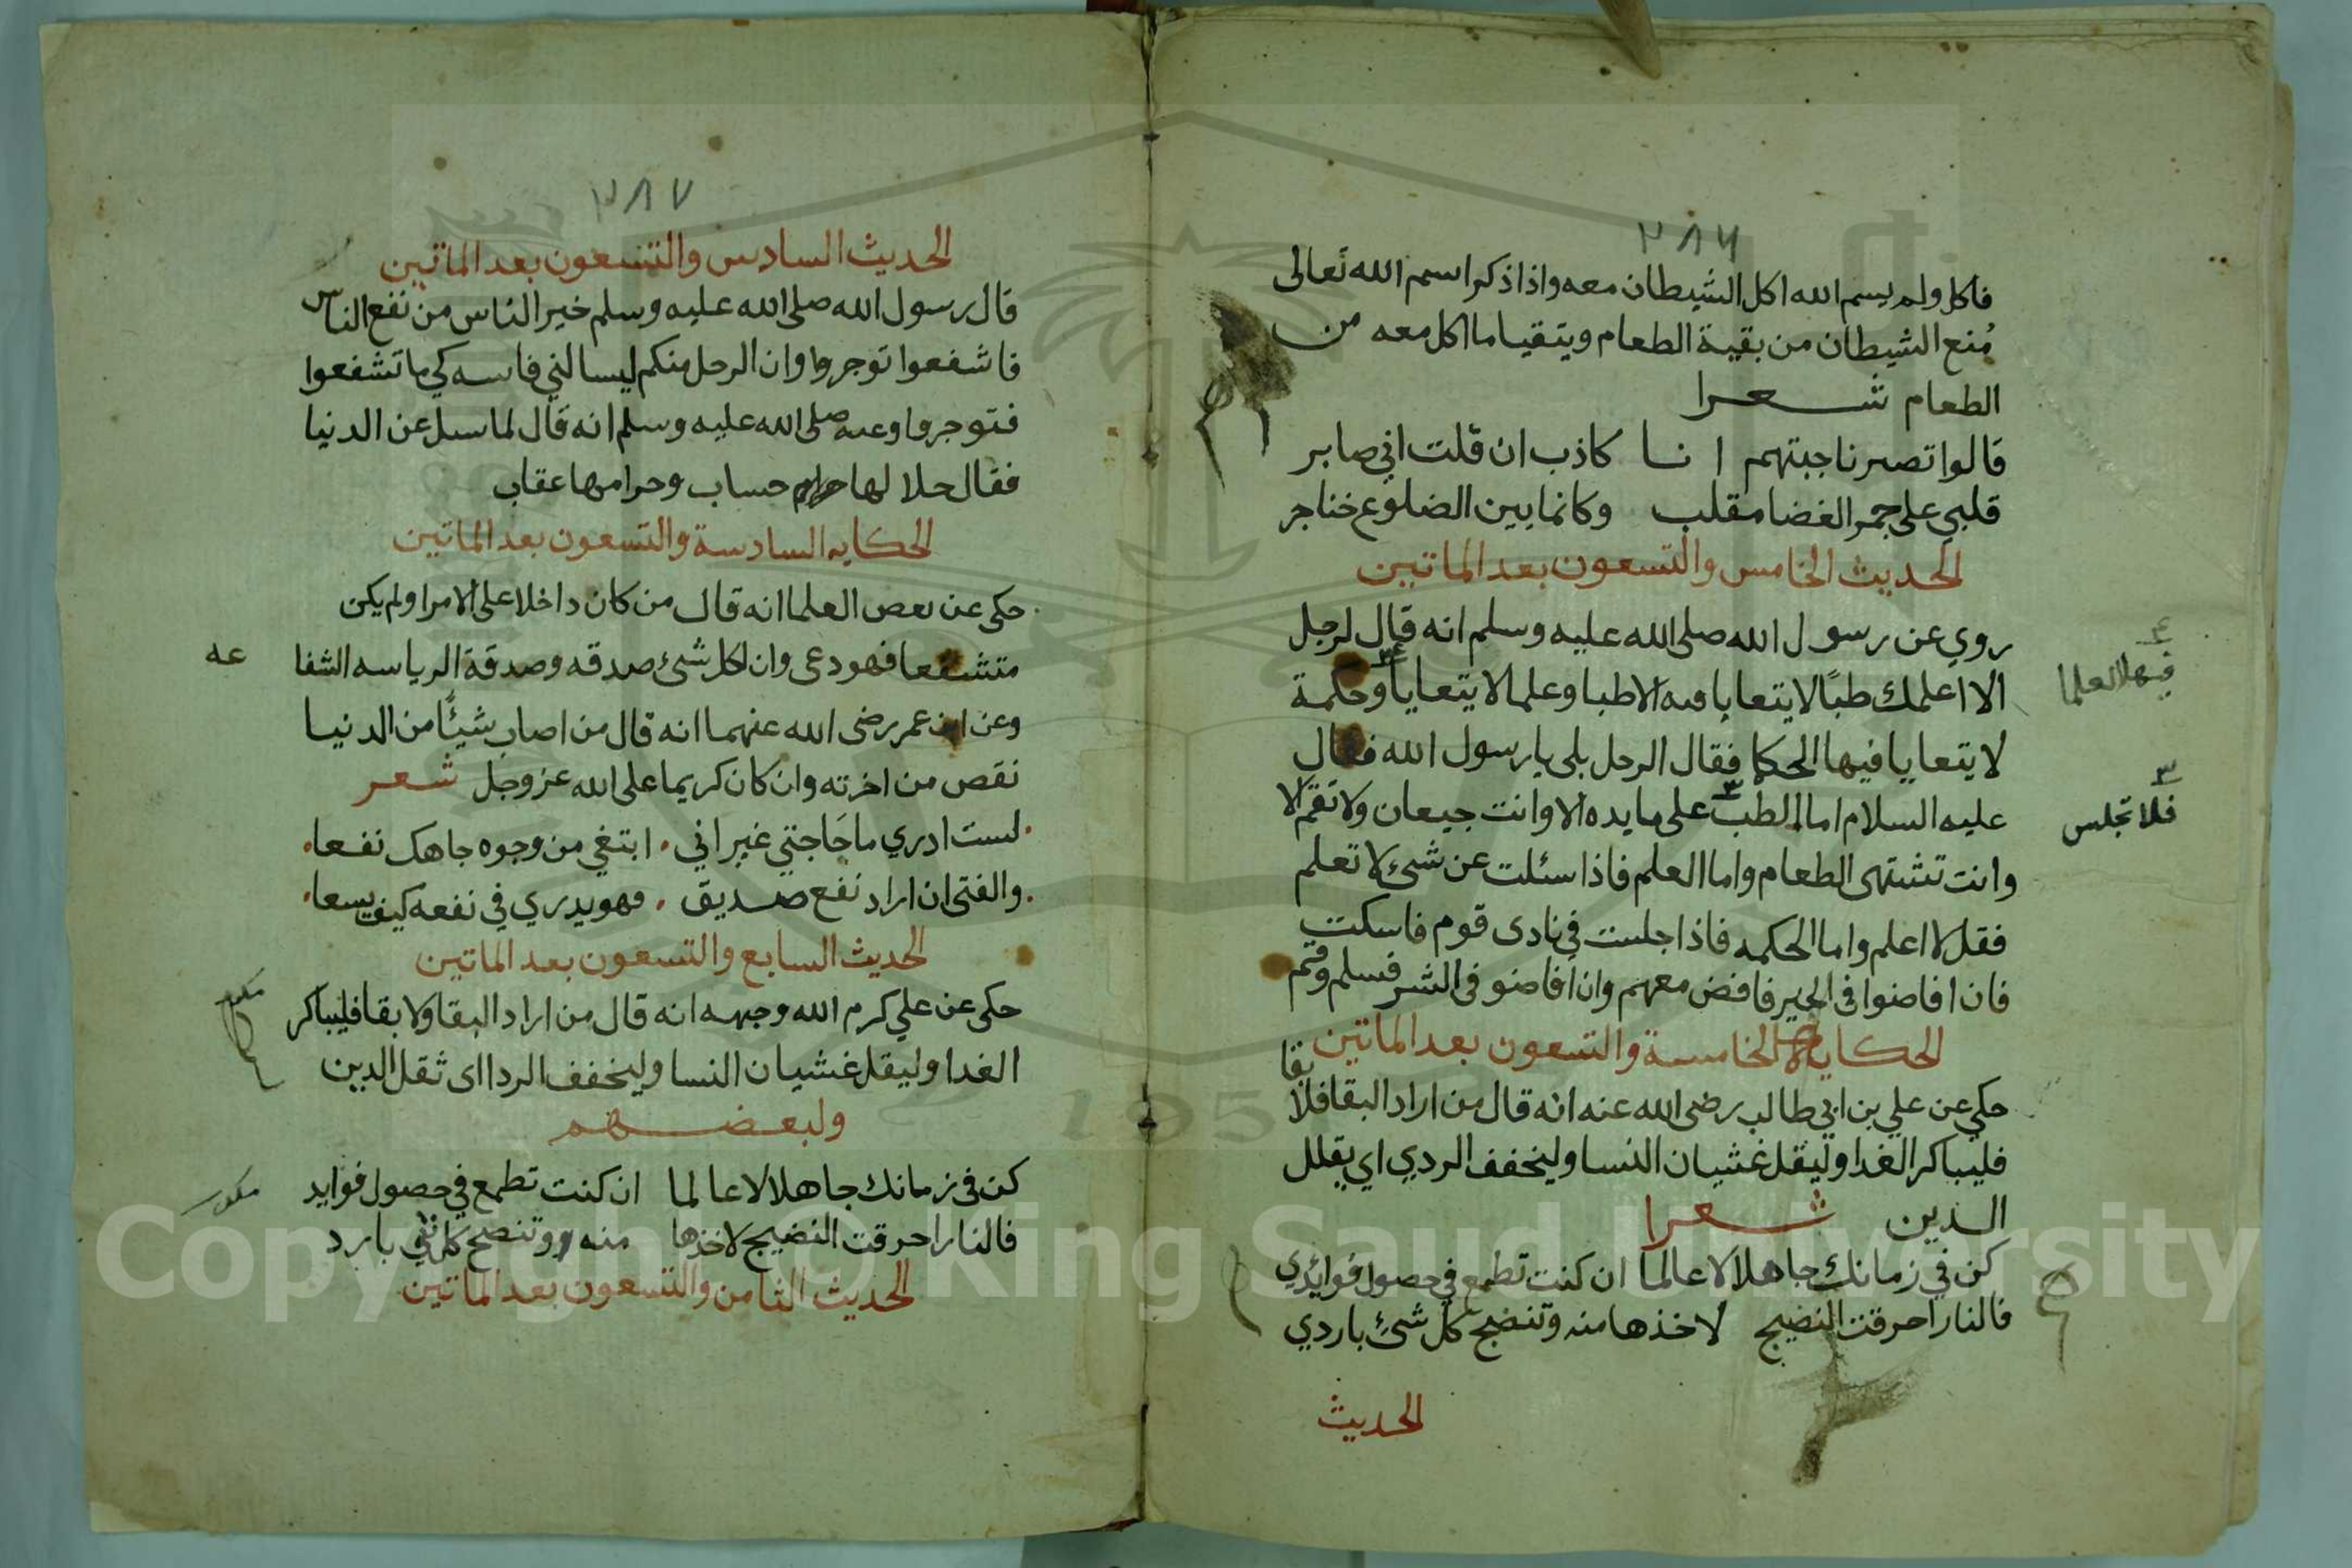 ٢٨٦
فاكل ولم يسم الله اكل الشيطان معه واذا ذكر اسم الله تعالى
مُنع الشيطان من بقية الطعام ويتقيا ما اكل معه من
الطعام شعرا
قالوا تصبر ناجبتهم انا كاذب ان قلت اني صابر
قلبي على جمر الغضا مقلب وكانما بين الضلوع خناجر
الحديث الخامس والتسعون بعد الماتين
روي عن رسول الله صلى الله عليه وسلم انه قال لرجل
الا اعلمك طبًا لا يتعايا فيه الاطبا وعلما لا يتعايا وحكمة
فيها العلما
لا يتعايا فيها الحكما فقال الرجل بلى يا رسول الله فقال
عليه السلام اما الطب على مايده الا وانت جيعان ولا تقم الا
فلا تجلس
وانت تشتهى الطعام واما العلم فاذا سئلت عن شئ لا تعلم
فقل لا اعلم واما الحكمه فاذا جلست في نادى قوم فاسكت
فان افاضوا فى الخير فافض معهم وان افاضو فى الشر فسلم وقم
الحكاية الخامسة والتسعون بعد الماتين
حكي عن علي بن ابي طالب رضى الله عنه انه قال من اراد البقا فلا بقا
فليباكر الغدا وليقل غشيان النسا وليخفف الردي اي يقلل
الدين شعرا
كن في زمانك جاهلا لا عالما ان كنت تطمع في حصول فوائدي
فالنار احرقت النضيج لاخذها منه وتنضج كل شئ باردي
الحديث
٢٨٧
الحديث السادس والتسعون بعد الماتين
قال رسول الله صلى الله عليه وسلم خير الناس من نفع الناس
فاشفعوا توجروا وان الرجل منكم ليسالني فامسه كي ما تشفعوا
فتوجروا وعنه صلى الله عليه وسلم انه قال لما سيل عن الدنيا
فقال حلالها حساب وحرامها عقاب
الحكايه السادسة والتسعون بعد الماتين
حكى عن بعص العلما انه قال من كان داخلا على الامرا ولم يكن
متشفعا فهو دعى وان لكل شئ صدقه وصدقة الرياسه الشفا عه
وعن ابن عمر رضى الله عنهما انه قال من اصاب شيئًا من الدنيا
نقص من اخرته وان كان كريما على الله عز وجل شعر
لست ادري ما حَاجتي غير اني ابتغي من وجوه جاهك نفعا
والفتى ان اراد نفع صديق فهو يدري في نفعه كيف يسعا
الحديث السابع والتسعون بعد الماتين
حكى عن علي كرم الله وجهه انه قال من اراد البقا ولا بقا فليباكر
مكرر
الغدا وليقل غشيان النسا وليخفف الردا اى ثقل الدين
ولبعضهم
كن فى زمانك جاهلا لا عالما ان كنت تطمع في حصول فوايد
مكرر
فالنار احرقت النضيج لاخذها منه وتنضج كل شئ بارد
الحديث الثامن والتسعون بعد الماتين
Copyright © King Saud University
1957